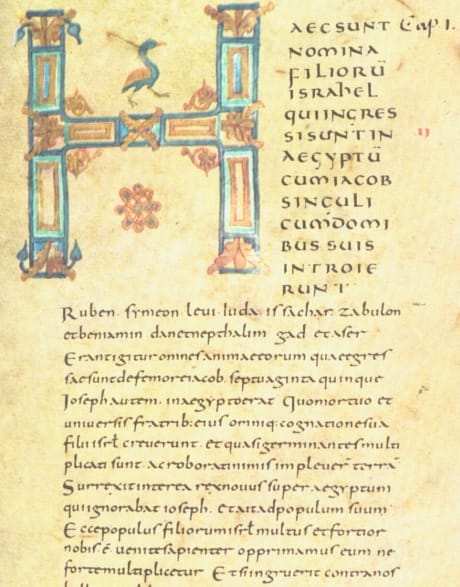 HAEC SUNT Cap I.
NOMINA
FILIORŪ
ISRAhEL
QUI INGRES
SI SUNT IN II
AEGYPTŪ
CUM IACOB
SINGULI
CUM DOMI
BUS SUIS
INTROIE
RUNT
Ruben. symeon. levi. iuda. issachar. zabulon
et beniamin dan et nepthalim gad et aser
Erant igitur omnes animae eorum quae egres
sae sunt de femore iacob. septuaginta quinque
Ioseph autem. in aegypto erat Quo mortuo et
universis fratrib: eius omniq: cognatione sua
filii isrł creverunt. et quasi germinantes multi
plicati sunt. ac roborati nimis implever̄ terrā
Surrexit interea rex novus super aegyptum
qui ignorabat ioseph. et ait ad populum suum
Ecce populus filiorum isrł multus et fortior
nobis ē. venite sapienter opprimamus eum ne
forte multiplicetur Et si ngruerit contra nos